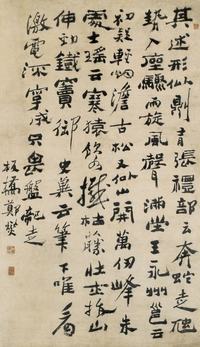 其述形似則有張禮部云奔蛇走虺
勢入座驟雨旋風聲滿堂王永州邕云
初疑輕煙澹古松又似山開萬仞峰朱
處士遙云寒猿飲水撼枯藤壯士拔山
伸勁鐵竇御史冀云筆下唯看
激電流字成只畏盤龍走
板橋鄭燮